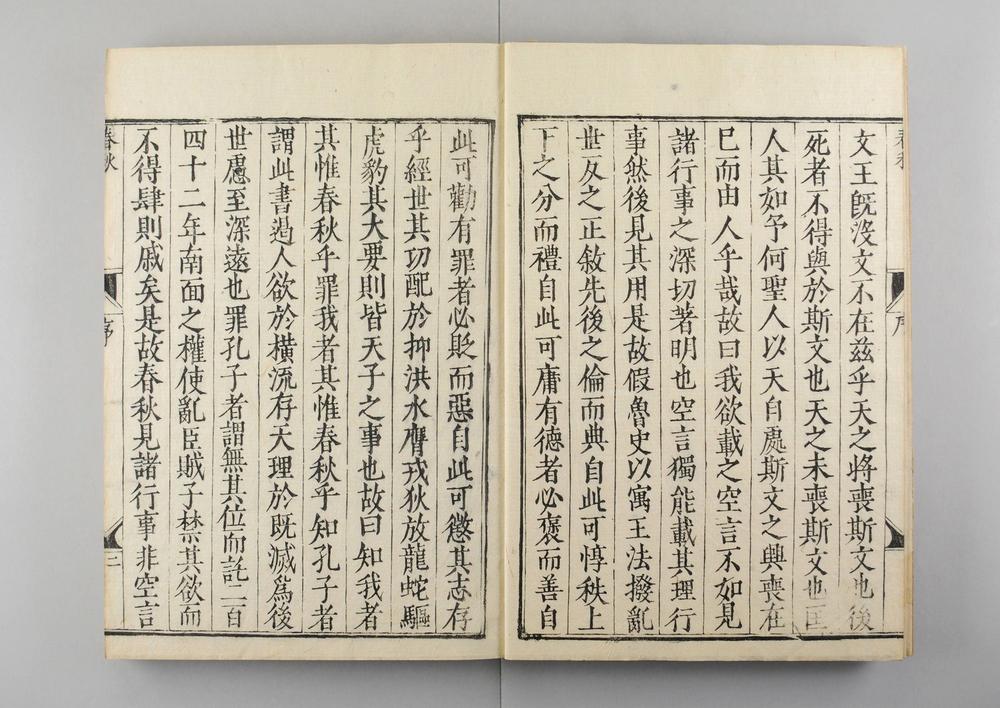 文王旣沒文不在茲乎天之將喪斯文也後
死者不得與於斯文也天之未喪斯文也匡
人其如予何聖人以天自處斯文之興喪在
已而由人乎哉故曰我欲載之空言不如見
諸行事之深切著明也空言獨能載其理行
事然後見其用是故假魯史以寓王法撥亂
世反之正敘先後之倫而典自此可惇秩上
下之分而禮自此可庸有德者必褒而善自
此可勸有罪者必貶而惡自此可懲其志存
乎經世其功配於抑洪水膺戎狄放龍蛇驅
虎豹其大要則皆天子之事也故曰知我者
其惟春秋乎罪我者其惟春秋乎知孔子者
謂此書遏人欲於橫流存天理於旣滅爲後
世慮至深遠也罪孔子者謂無其位而託二百
四十二年南面之權使亂臣賊子禁其欲而
不得肆則戚矣是故春秋見諸行事非空言
春秋
序
三